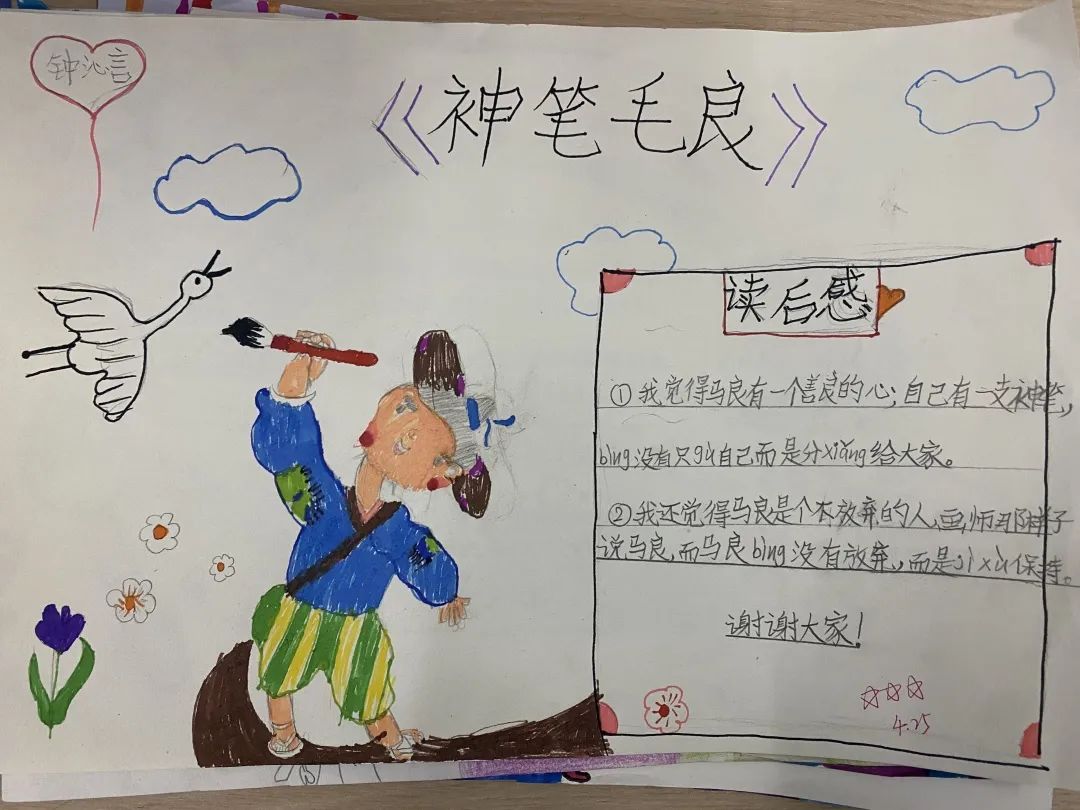 钟沁言
《神笔毛良》
读后感
①我觉得马良有一个善良的心；自己有一支神笔，
bìng没有只gù自己而是分xiǎng给大家。
②我还觉得马良是个不放弃的人，画师那样子
说马良，而马良bìng没有放弃，而是jì xù保持。
谢谢大家！
4.25